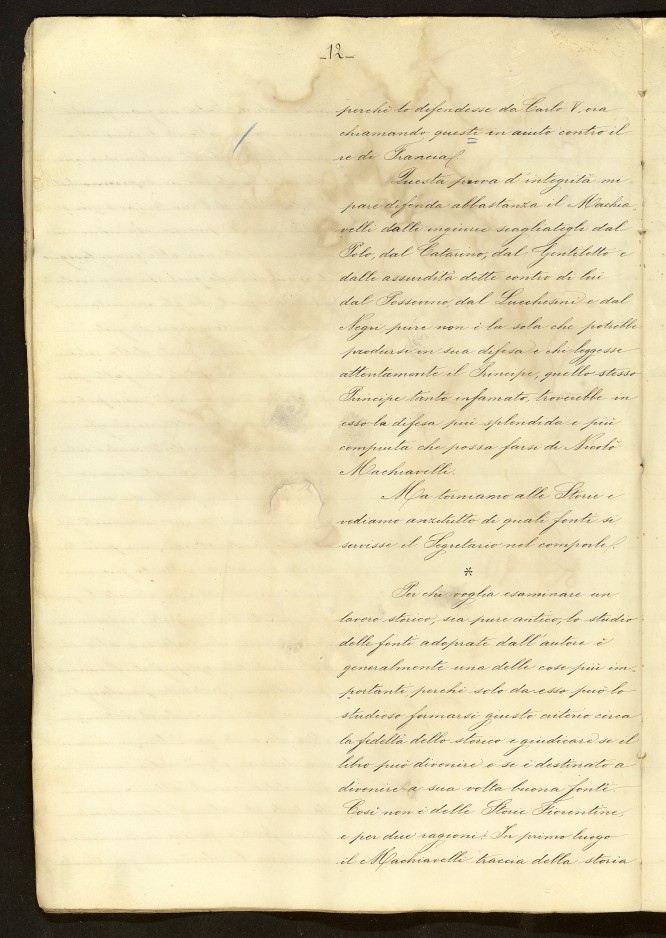 _12_
perchè lo difendesse da Carlo V, ora
chiamando questi in aiuto contro il
re di Francia.
Questa prova d'integrità mi
pare difenda abbastanza il Machia-
velli dalle ingiurie scagliategli dal
Polo, dal Catarino, dal Gentiletto e
dalle assurdità dette contro di lui
dal Possevino, dal Lucchesini e dal
Negri pure non è la sola che potrebbe
prodursi in sua difesa e chi leggesse
attentamente il Principe, quello stesso
Principe tanto infamato, troverebbe in
esso la difesa più splendida e più
compiuta che possa farsi di Nicolò
Machiavelli.
Ma torniamo alle Storie e
vediamo anzitutto di quali fonti si
servisse il Segretario nel comporle.
*
Per chi voglia esaminare un
lavoro storico, sia pure antico, lo studio
delle fonti adoprate dall'autore è
generalmente una delle cose più im-
portanti perchè solo da esso può lo
studioso formarsi giusto criterio circa
la fedeltà dello storico e giudicare se il
libro può divenire o se è destinato a
divenire a sua volta buona fonte.
Così non è delle Storie Fiorentine,
e per due ragioni: In primo luogo
il Machiavelli traccia della storia